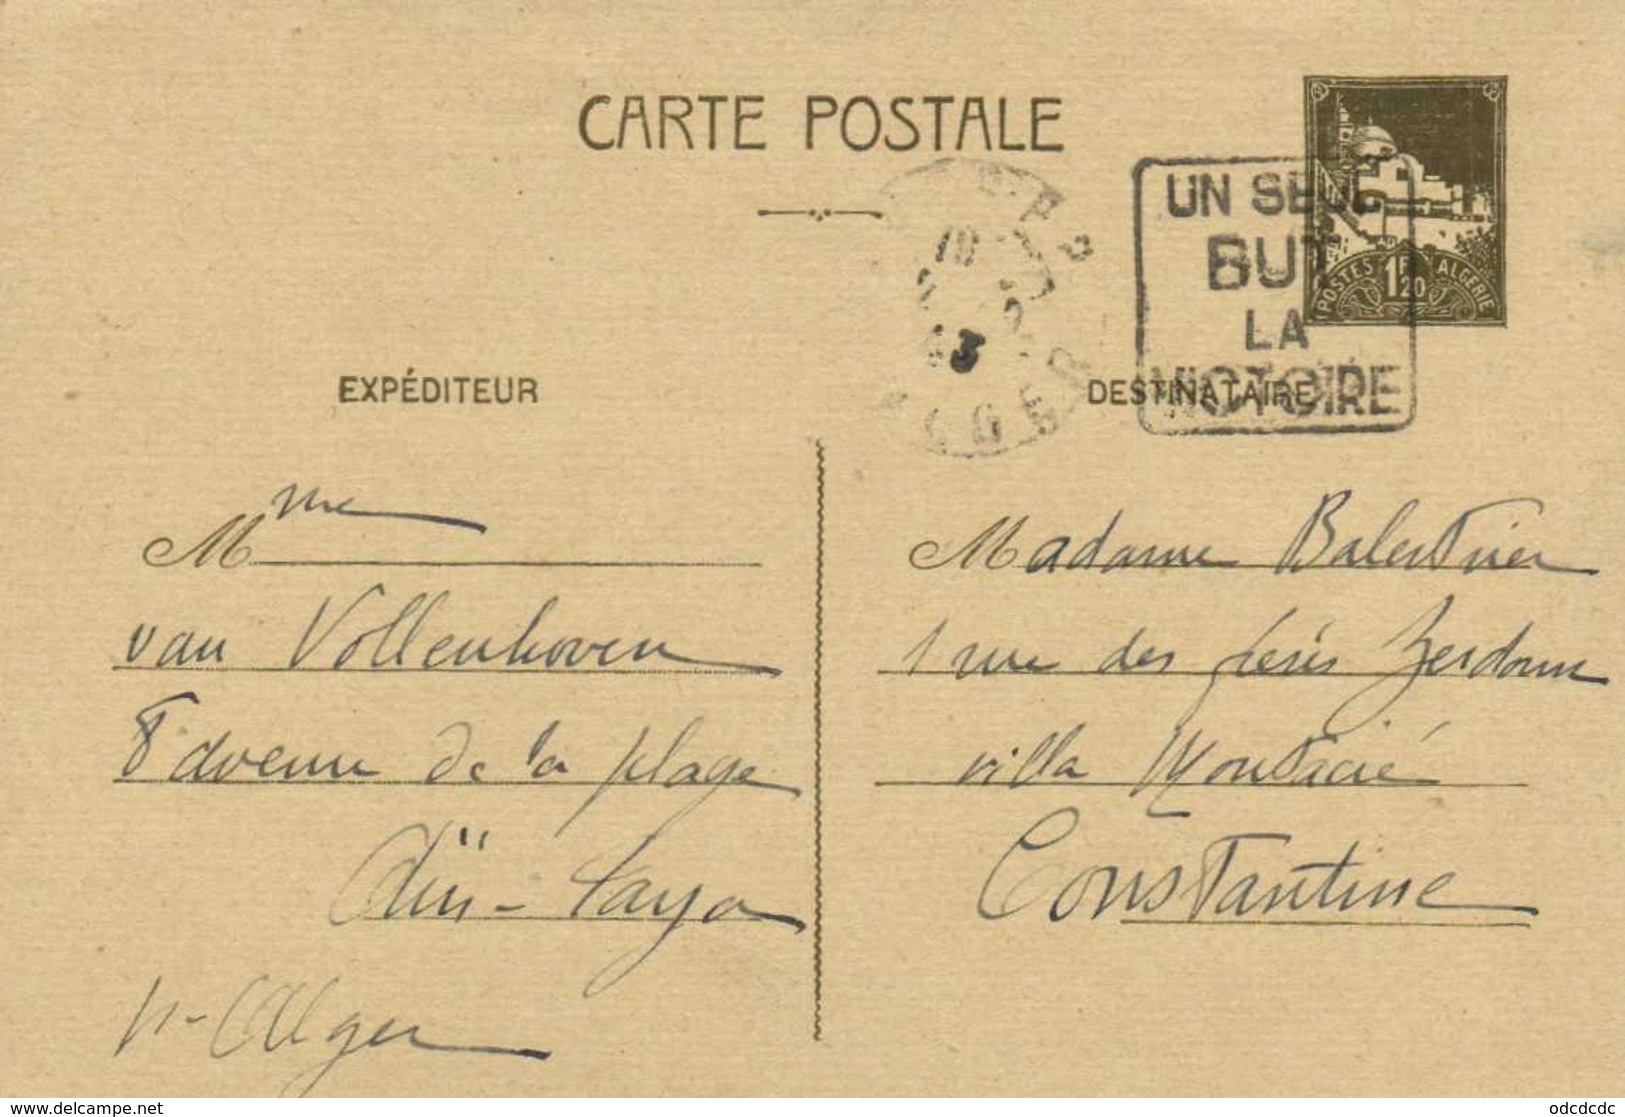 CARTE POSTALE
UN SEUL
BUT
LA
VICTOIRE
POSTES 1F20 ALGÉRIE
ALGER
EXPÉDITEUR
DESTINATAIRE
Mme
van Vollenhoven
8 avenue de la plage
Aïn-Taya
Alger
Madame Balestrier
1 rue des frères Zerdoun
villa
Constantine
www.delcampe.net
odcdcdc